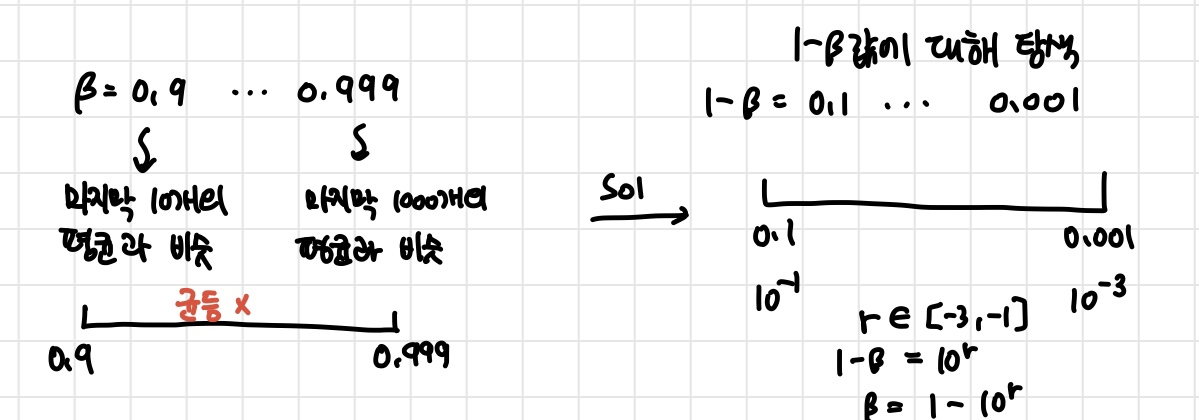 β = 0.9 ... 0.999
마지막 10개의
평균과 비슷
마지막 1000개의
평균과 비슷
균등 x
0.9
0.999
Sol
1-β 값에 대해 탐색
1-β = 0.1 ... 0.001
0.1
0.001
10⁻¹
10⁻³
r ∈ [-3, -1]
1-β = 10ʳ
β = 1 - 10ʳ